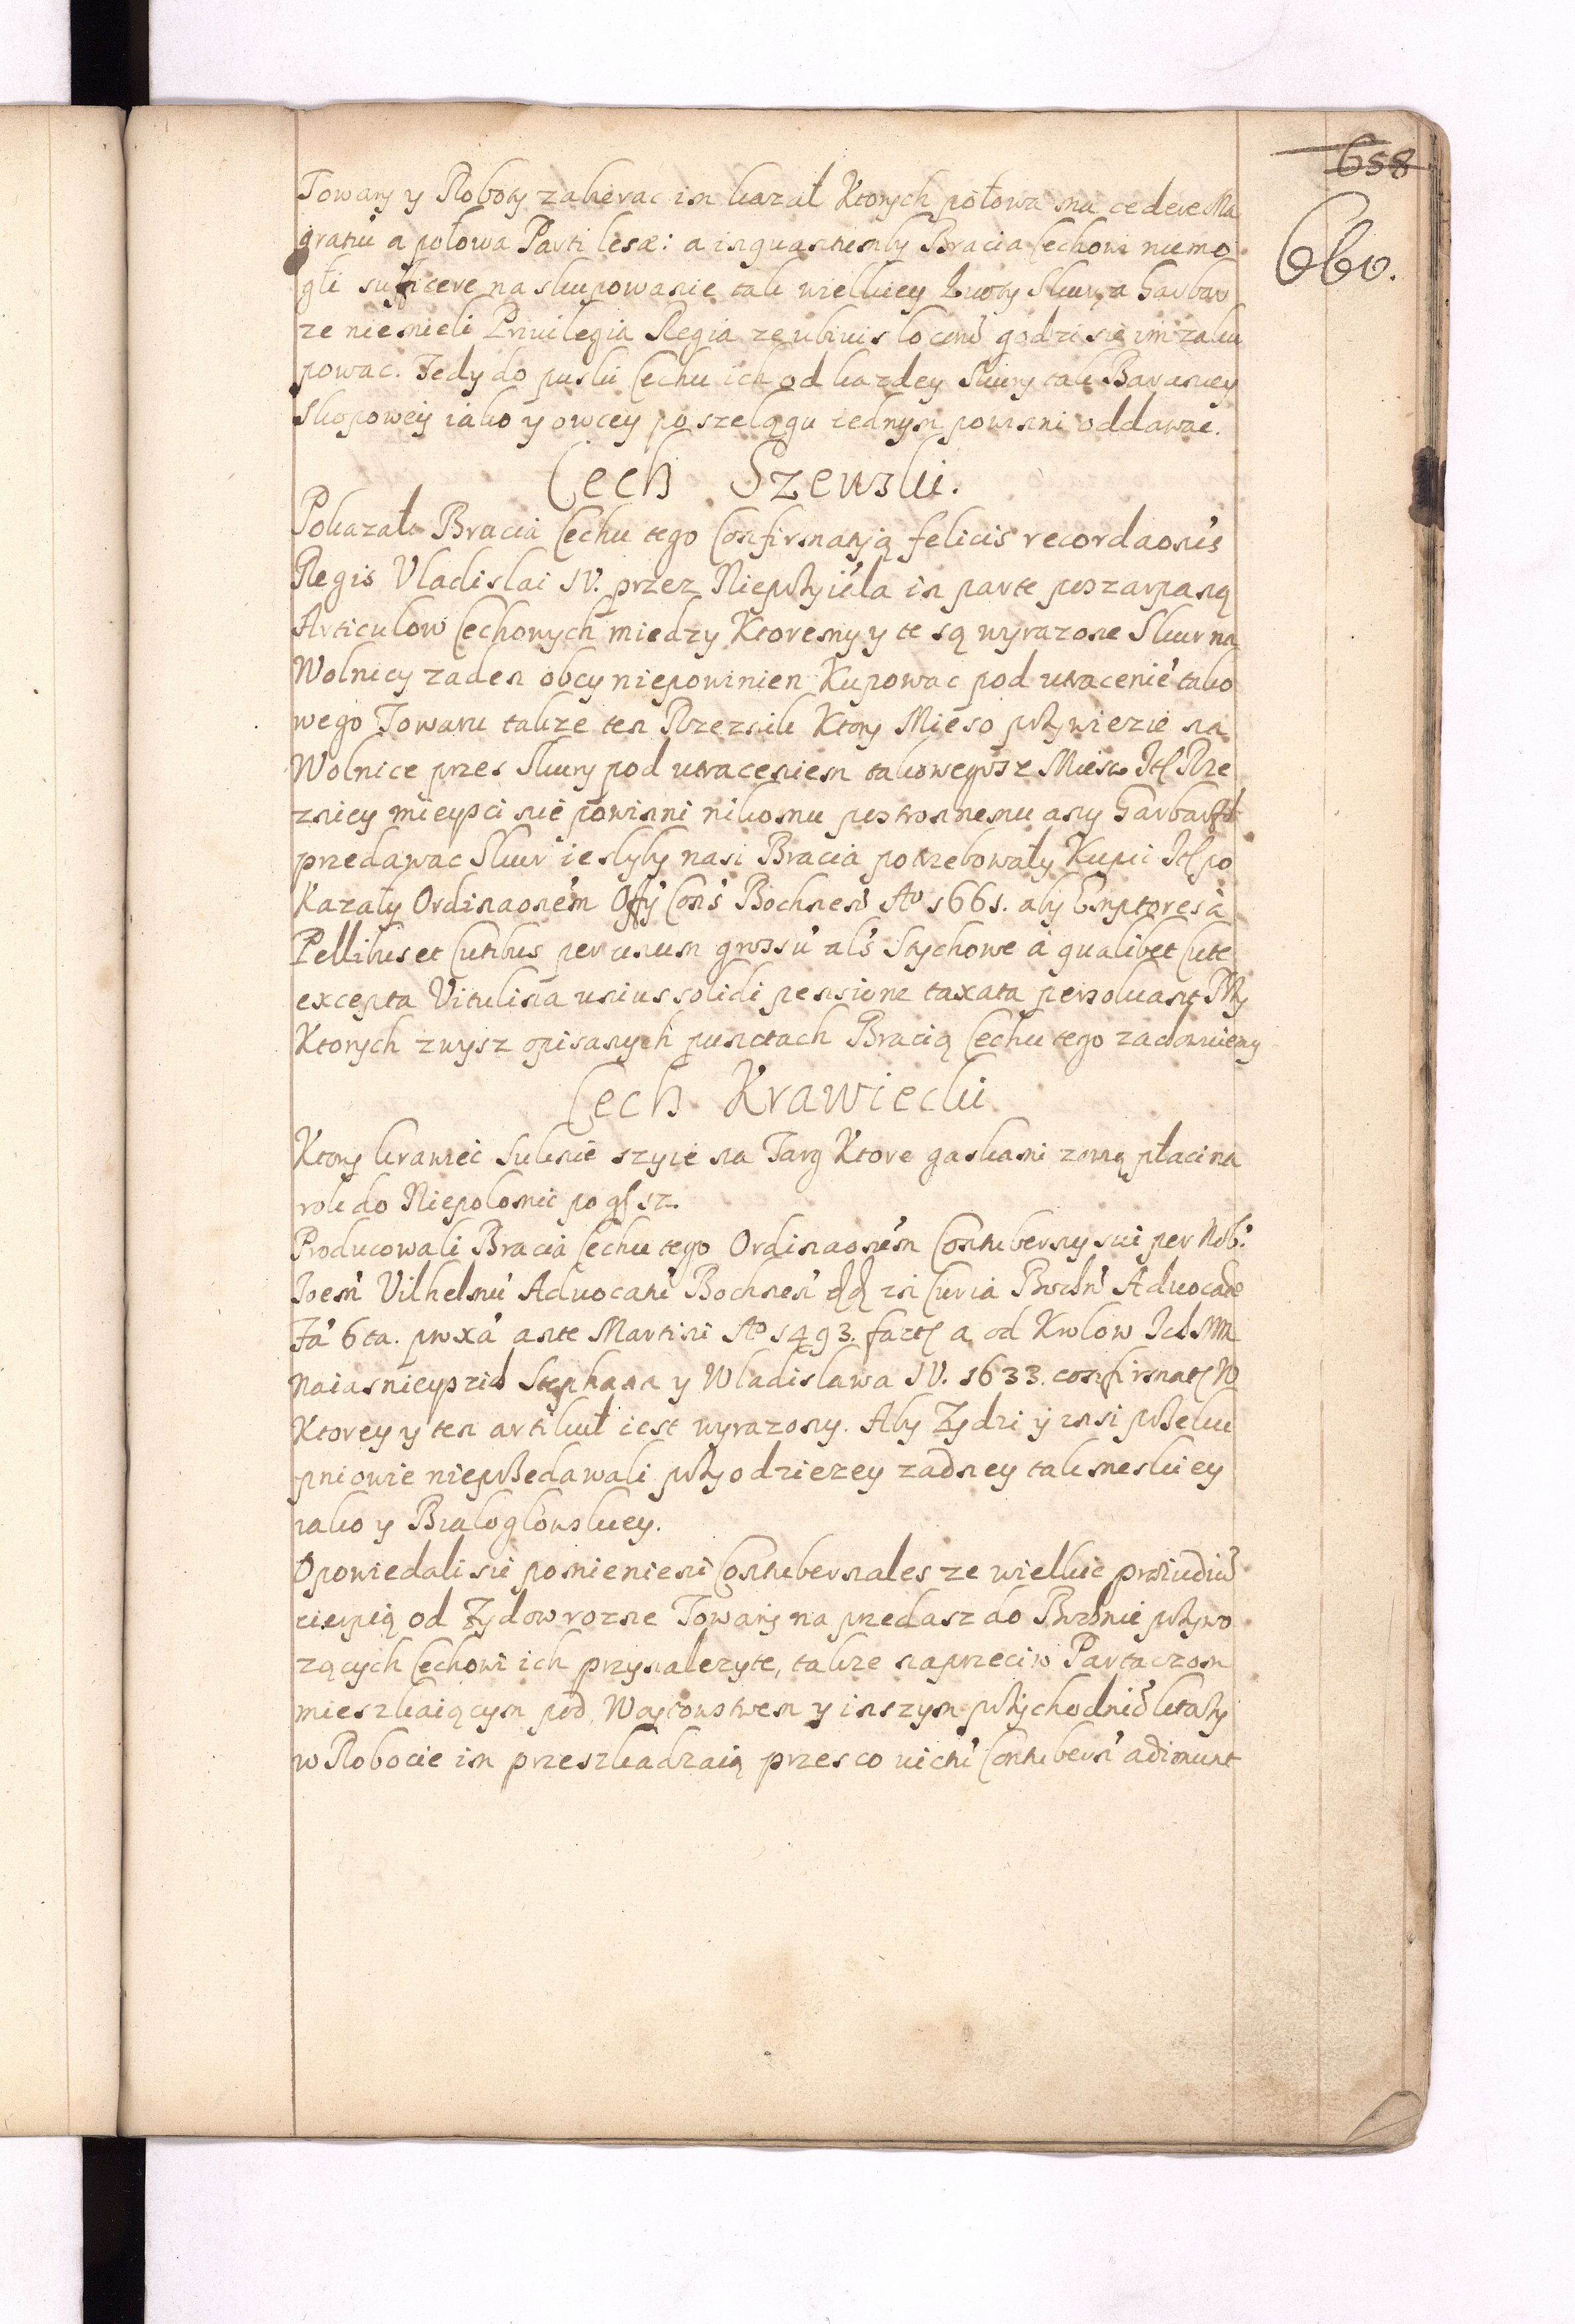 658
660.
Towary y Roboty zabierac im kazał Ktorych połowa ma cedere Ma
gratui a połowa Parti lesæ: a inquantumby Bracia Cechowi niemo
gli sufficere na skupowanie tak wielkiey Kwoty Skur, a Garbar
ze niemieli Privilegia Regia ze ubivis locorũ godzi się im zaku
powac. Tedy do puski Cechu ich od kazdey skury tak Baraniey
Skopowey iako y owcey po szelągu iednym powinni oddawac.
Cech Szewski.
Pokazali Bracia Cechu tego Confirmatyią felicis recordaonis
Regis Vladislai IV. przez Nieprzyiela in parte poszarpaną
Articulow Cechowych miedzy Ktoremy y te są wyrazone Skur na
Wolnicy zaden obcy niepowinien Kupowac pod utracenie tako
wego Towaru takze ten Rzeznik Ktory Mieso przywiezie na
Wolnice przes Skury pod utraceniem takowegosz Miesa It Rze
znicy mieyscí nie powinni nikomu postronnemu any Garbarzõ
przedawac Skur iesłyby nasi Bracia potrzebowały Kupic It po
Kazały Ordinaonem Offÿ Cons Bochnen Aº 1661. aby Emptores a
Pellibus et Cutibus per unum grossũ als Stychowe a qualibet Cute
excepta Vitulina unius solidi pensione taxata persoluant Przy
Ktorych zwysz opisanych punctach Bracią Cechu tego zachowuiemy
Cech Krawiecki
Ktory krawiec suknie szyie na Targ Ktore gaskami zowią płaci na
rok do Niepolomic po gſ 12.
Producowali Bracia Cechu tego Ordinaonem Contuberny sui per Nob:
Joem Vilhelmũ Advocatũ Bochnen in Curia Advocade
Fa 6ta. proxa ante Martini Aº 1493. fact a od Krolow Ich Mm
Naiasnieyszid Stephana y Wladislawa IV. 1633. confirmat W
Ktorey y ten artikuł iest wyrazony. Aby Zydzi y insi przeku
pniowie nieprzedawali przyodziezey zadney tak meskiey
iako y Białogłowskiey.
Opowiedali sie pomienieni Contubernales ze wielkie preiudiũ
cierpią od Zydow rozne Towary na przedasz do Bochnie przywo
zących Cechowi ich przynalezyte, takze naprzeciw Partaczom
mieszkaiącym pod Woytowstwem y inszym przychodniõ ktorzy
w Robocie im przeszkadzaią przes co victũ Contubern adimunt